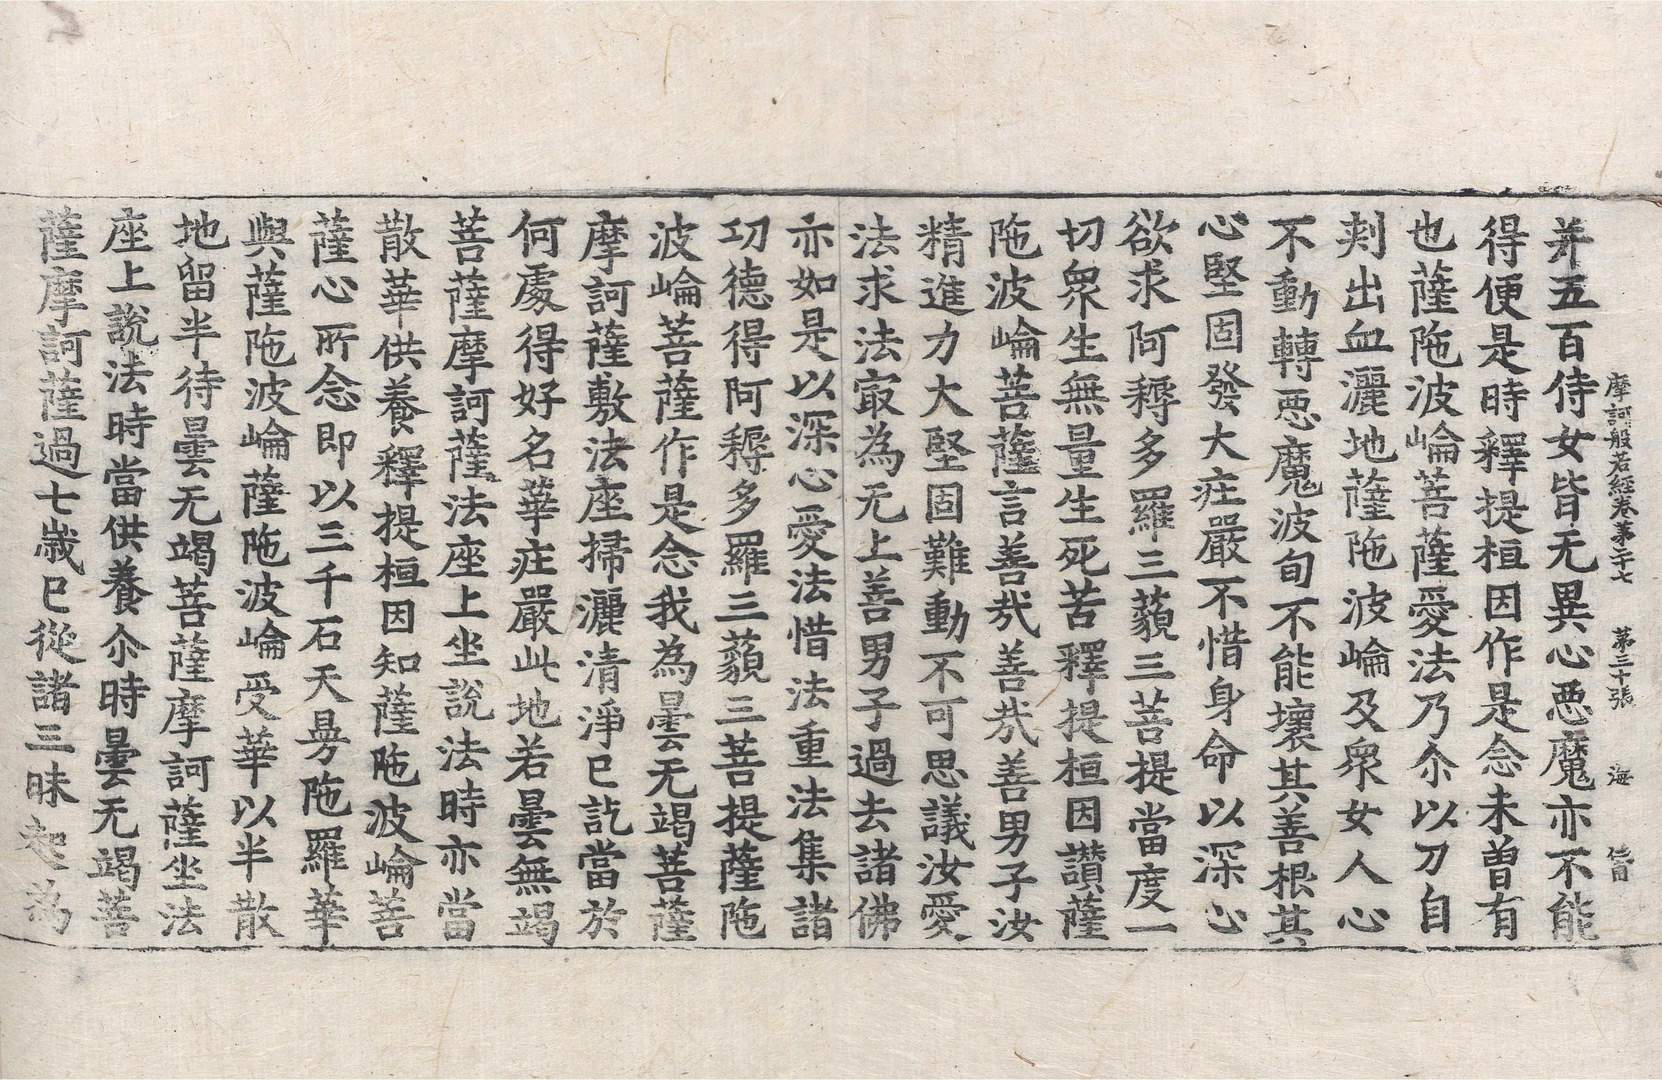 摩訶般若經卷第二十七　第三十張　海
并五百侍女皆无異心惡魔亦不能
得便是時釋提桓因作是念未曾有
也薩陁波崘菩薩愛法乃尒以刀自
刾出血灑地薩陁波崘及衆女人心
不動轉惡魔波旬不能壞其善根其
心堅固發大庄嚴不惜身命以深心
欲求阿耨多羅三藐三菩提當度一
切衆生無量生死苦釋提桓因讃薩
陁波崘菩薩言善㢤善㢤善男子汝
精進力大堅固難動不可思議汝愛
法求法㝡為无上善男子過去諸佛
亦如是以深心愛法惜法重法集諸
功德得阿耨多羅三藐三菩提薩陁
波崘菩薩作是念我為曇无竭菩薩
摩訶薩敷法座掃灑清淨已訖當於
何處得好名華庄嚴此地若曇無竭
菩薩摩訶薩法座上坐說法時亦當
散華供養釋提桓因知薩陁波崘菩
薩心所念即以三千石天曼陁羅華
與薩陁波崘薩陁波崘受華以半散
地留半待曇无竭菩薩摩訶薩坐法
座上說法時當供養尒時曇无竭菩
薩摩訶薩過七歲已從諸三昧起為